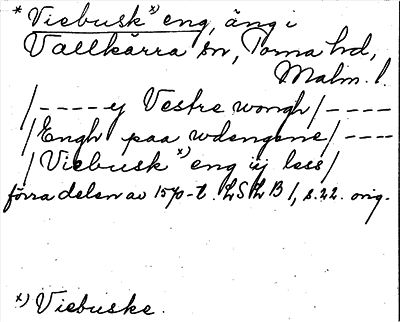 * Viebusk x) eng, äng i
Vallkärra sn, Torna hd,
Malm. l.
/---- ij Vestre wongh/----
/Engh paa wdengene/---
/Viebusk x) eng iij less/
förra delen av 1570-t. LSLB 1, s. 22. orig.
x) Viebuske.